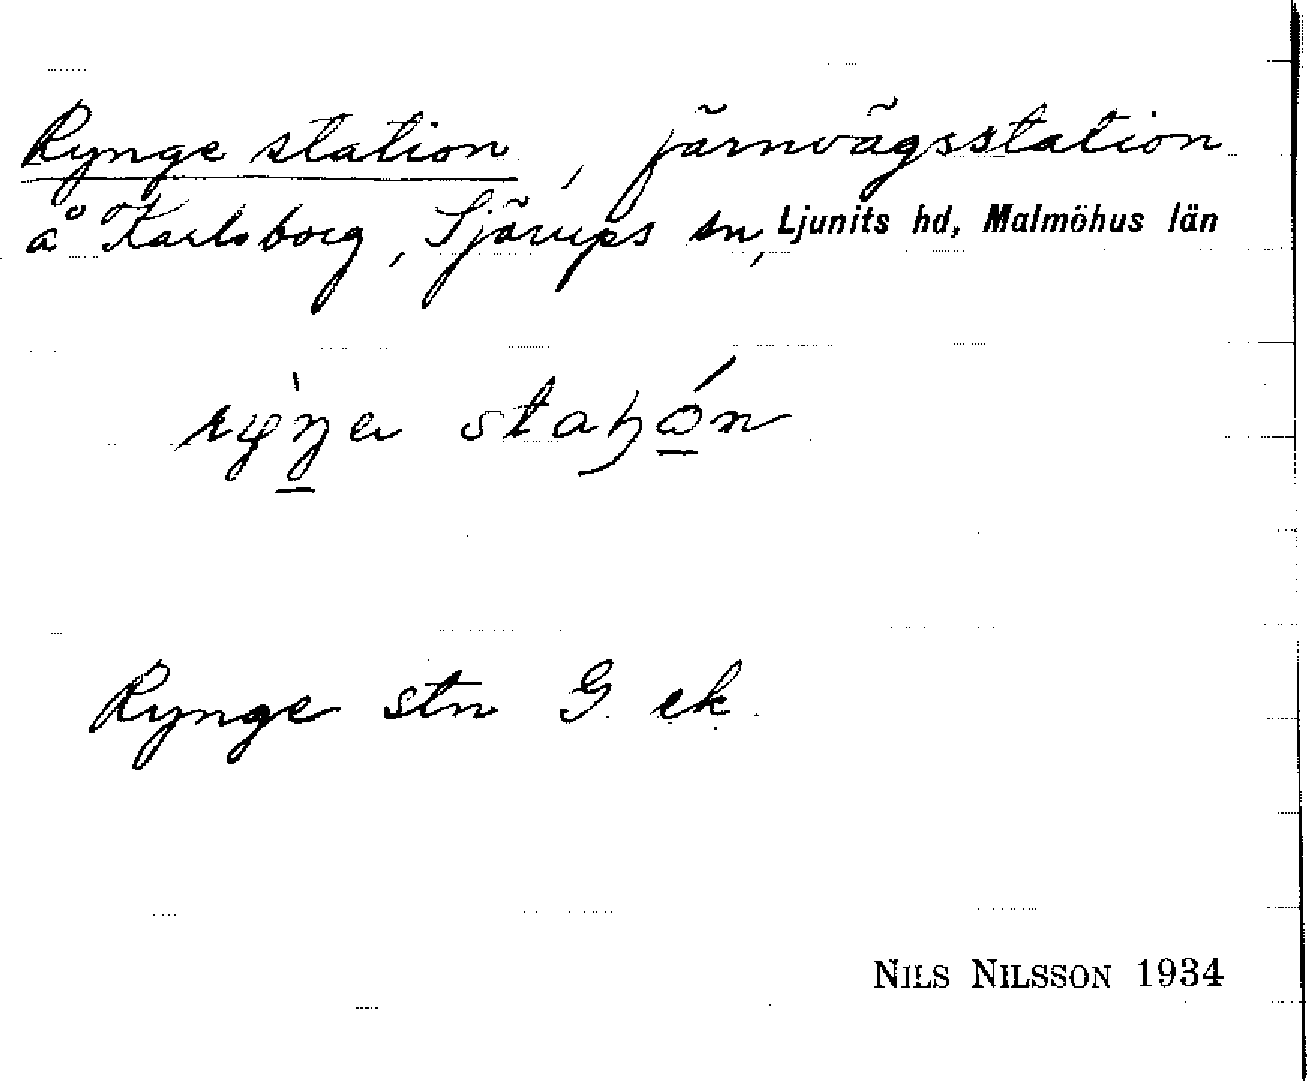 Rynge station, järnvägsstation
å Karlsborg, Sjörups sn, Ljunits hd, Malmöhus län
Rynge stn G. ek.
NILS NILSSON 1934